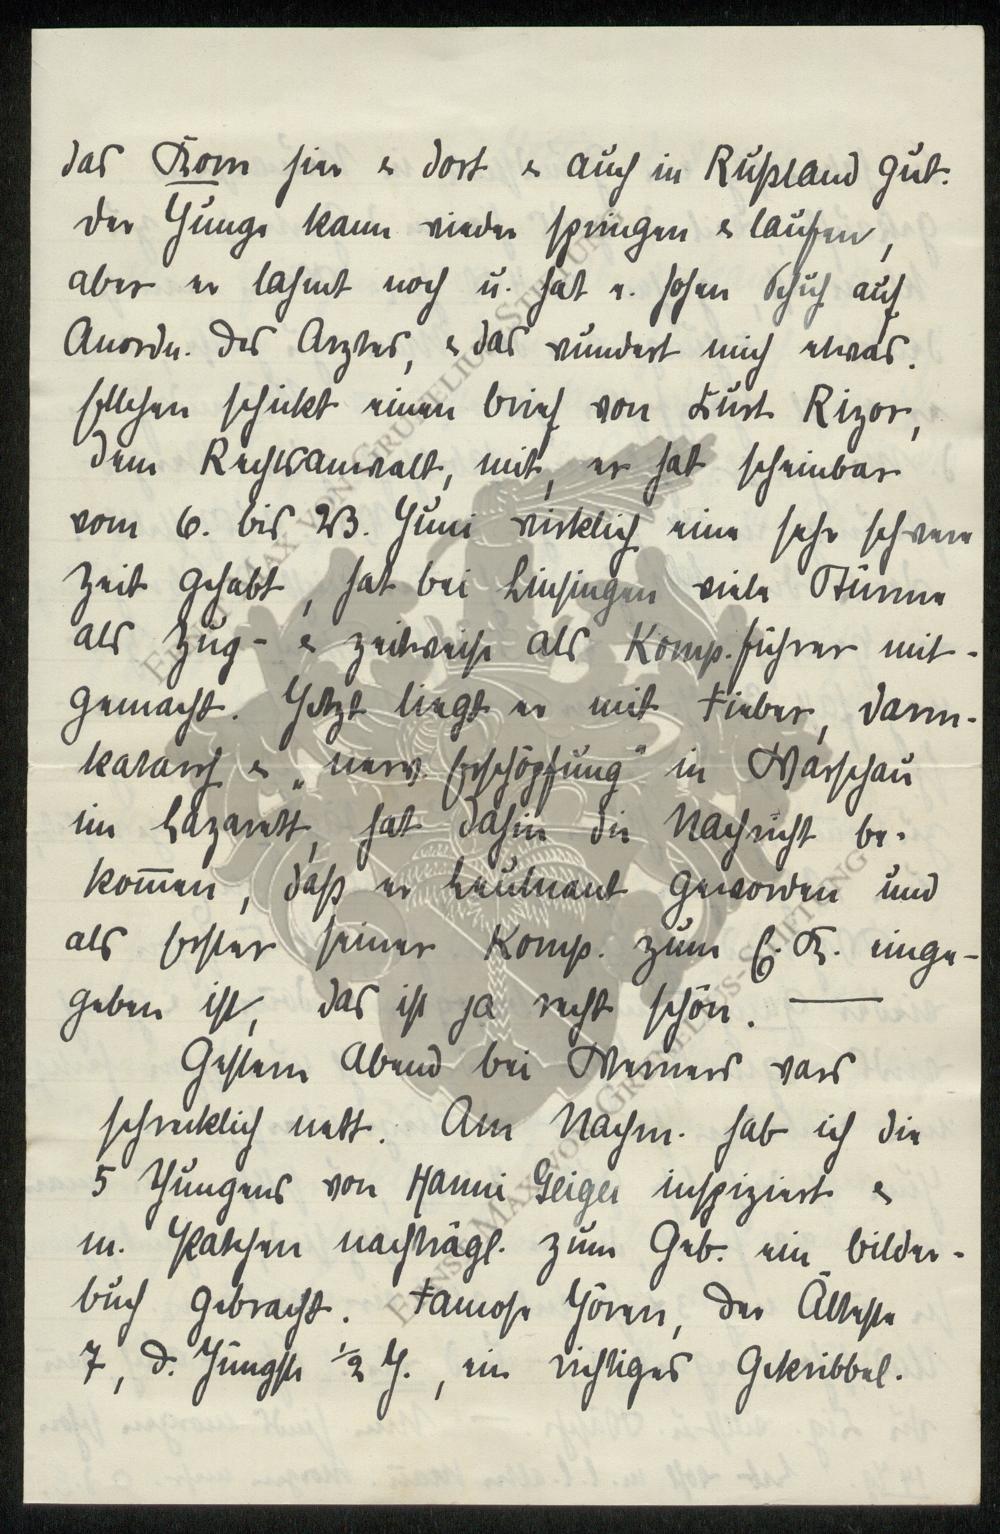 das Korn hier & dort & auch in Rußland gut.
Der Junge kann wieder springen & laufen,
aber er lahmt noch u. hat e. hohen Schuh auf
Anordn. des Arztes, & das wundert mich etwas.
Ellchen schickt einen Brief von Kurt Rizor,
dem Rechtsanwalt, mit, er hat scheinbar
vom 6. bis 23. Juni wirklich eine sehr schwere
Zeit gehabt, hat bei Linsingen viele Stürme
als Zug- & zeitweise als Komp.führer mit-
gemacht. Jetzt liegt er mit Fieber, Darm-
katarrh & „nerv. Erschöpfung" in Warschau
im Lazarett, hat dahin die Nachricht be-
kommen, daß er Leutnant geworden und
als Erster seiner Komp. zum E. K. einge-
geben ist, das ist ja recht schön. —
Gestern Abend bei Werners wars
schrecklich nett. Am Nachm. hab ich die
5 Jungens von Hanni Geiger inspiziert &
m. Patchen nachträgl. zum Geb. ein Bilder-
buch gebracht. Famose Jören, der Älteste
7, d. Jüngste 1/2 J., ein richtiges Gekribbel.
ERNST MAX VON GRUNELIUS-STIFTUNG
ERNST MAX VON GRUNELIUS-STIFTUNG